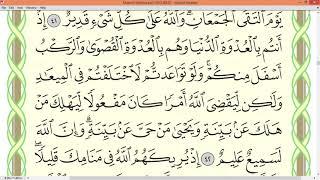 يَوْمَ ٱلْتَقَى ٱلْجَمْعَانِ وَٱللَّهُ عَلَىٰ كُلِّ شَىْءٍ قَدِيرٌ ٤١
أَنتُم بِٱلْعُدْوَةِ ٱلدُّنْيَا وَهُم بِٱلْعُدْوَةِ ٱلْقُصْوَىٰ وَٱلرَّكْبُ
أَسْفَلَ مِنكُمْ ۚ وَلَوْ تَوَاعَدتُّمْ لَٱخْتَلَفْتُمْ فِى ٱلْمِيعَٰدِ
وَلَٰكِن لِّيَقْضِىَ ٱللَّهُ أَمْرًا كَانَ مَفْعُولًا لِّيَهْلِكَ مَنْ
هَلَكَ عَنۢ بَيِّنَةٍ وَيَحْيَىٰ مَنْ حَىَّ عَنۢ بَيِّنَةٍ ۗ وَإِنَّ ٱللَّهَ
لَسَمِيعٌ عَلِيمٌ ٤٢ إِذْ يُرِيكَهُمُ ٱللَّهُ فِى مَنَامِكَ قَلِيلًا